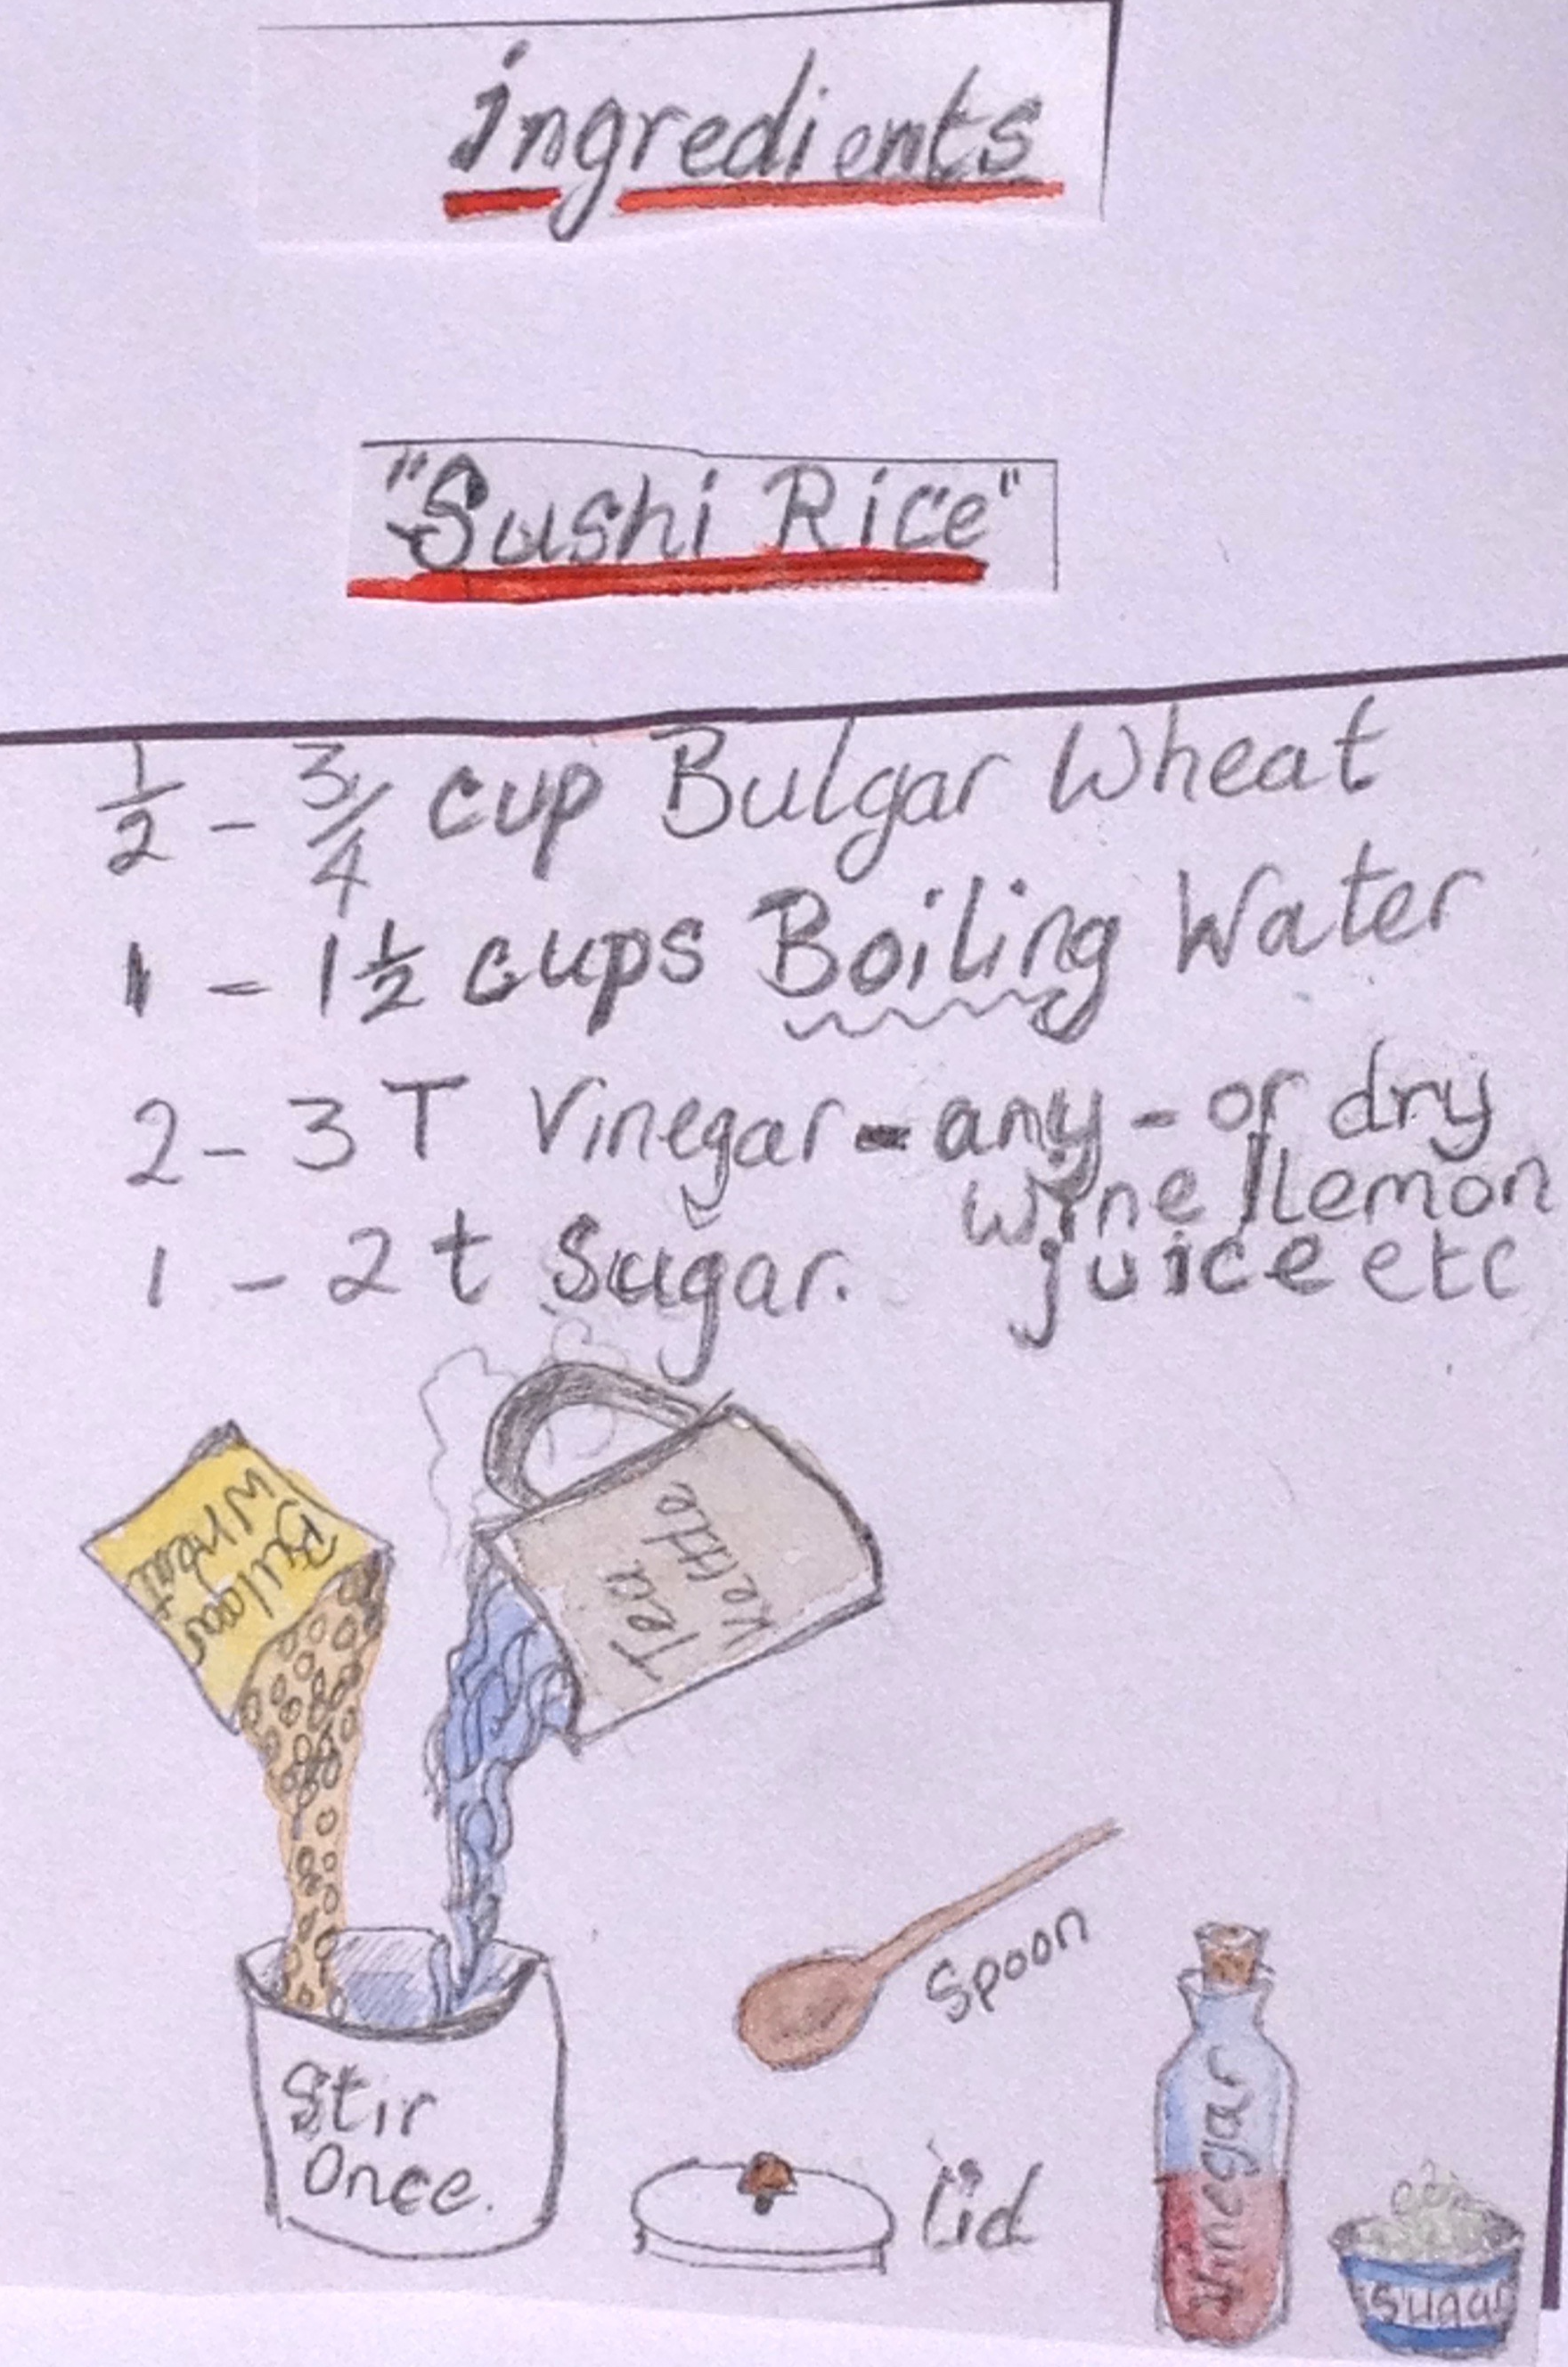 ingredients
"Sushi Rice"
1/2 - 3/4 cup Bulgar Wheat
1 - 1 1/2 cups Boiling Water
2 - 3 T Vinegar - any - or dry
wine / lemon
juice etc
1 - 2 t Sugar.
Bulgar
Wheat
Tea
Kettle
Stir
Once.
Spoon
Lid
Vinegar
Sugar